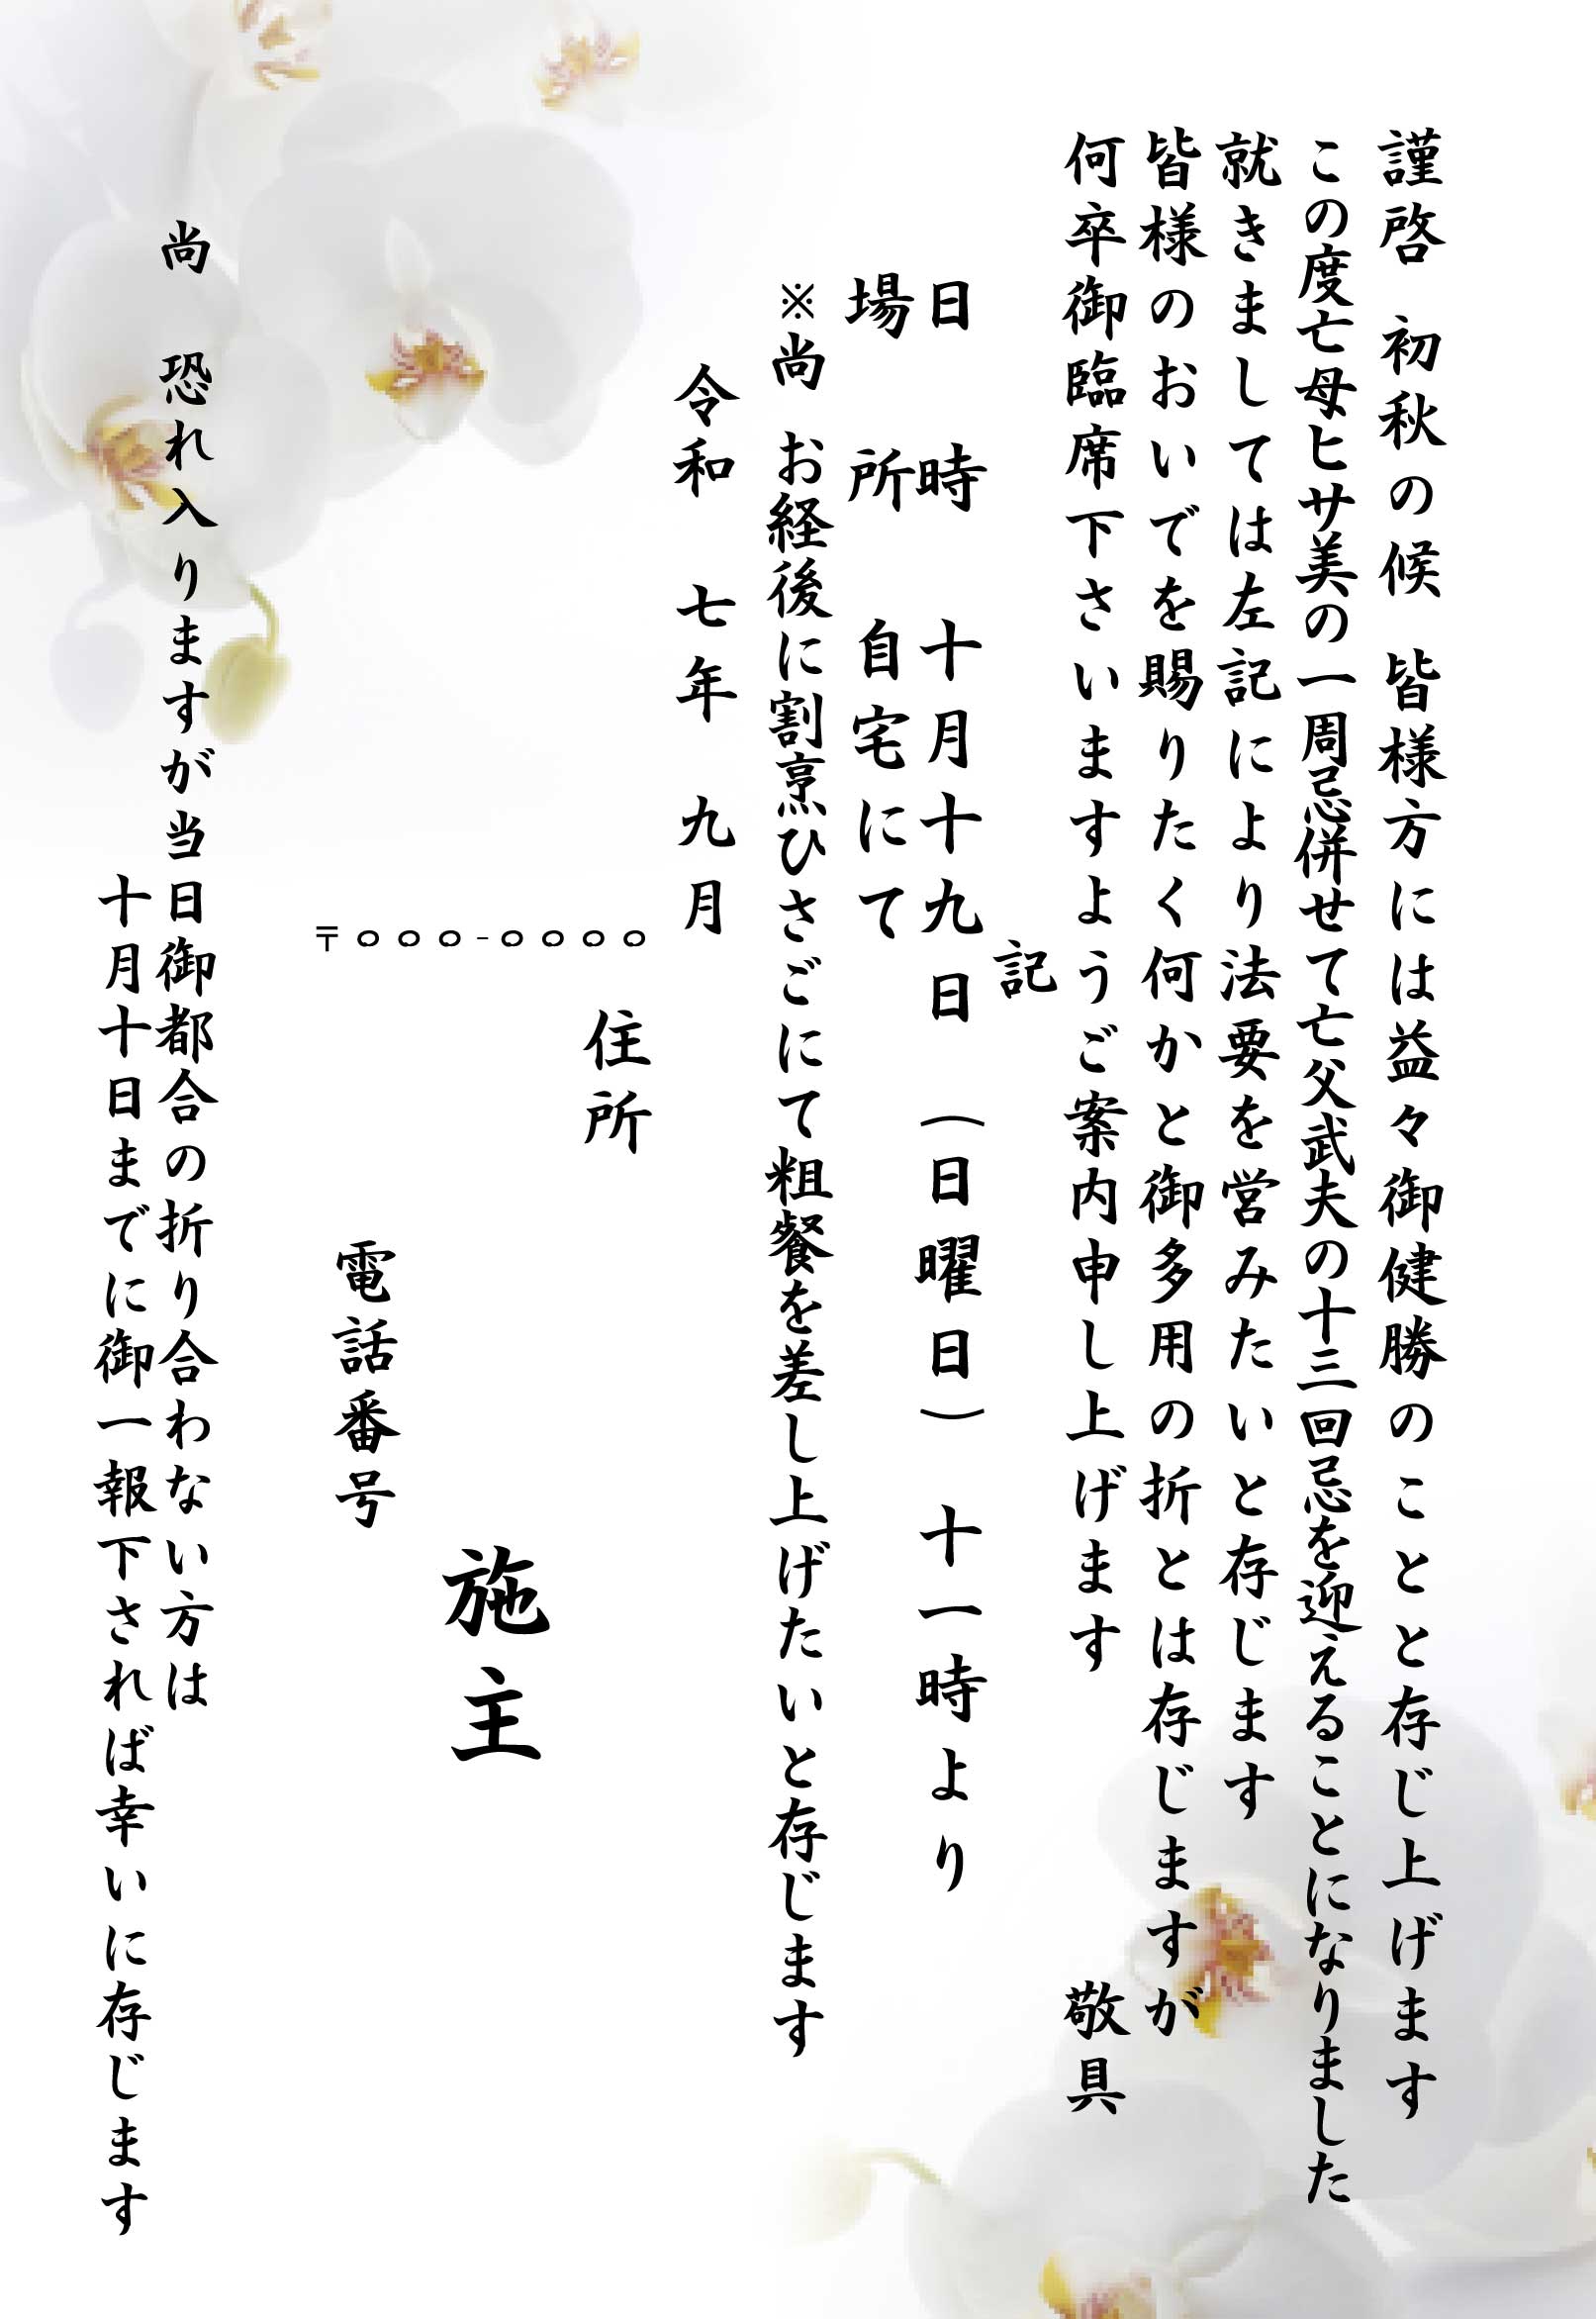 謹啓 初秋の候 皆様方には益々御健勝のことと存じ上げます
この度亡母ヒサ美の一周忌併せて亡父武夫の十三回忌を迎えることになりました
就きましては左記により法要を営みたいと存じます
皆様のおいでを賜りたく何かと御多用の折とは存じますが
何卒御臨席下さいますようご案内申し上げます 敬具
記
日 時 十月十九日 (日曜日) 十一時より
場 所 自宅にて
※尚 お経後に割烹ひさごにて粗餐を差し上げたいと存じます
令和 七年 九月
〒○○○-○○○○
住所
施主
電話番号
尚 恐れ入りますが当日御都合の折り合わない方は
十月十日までに御一報下されば幸いに存じます